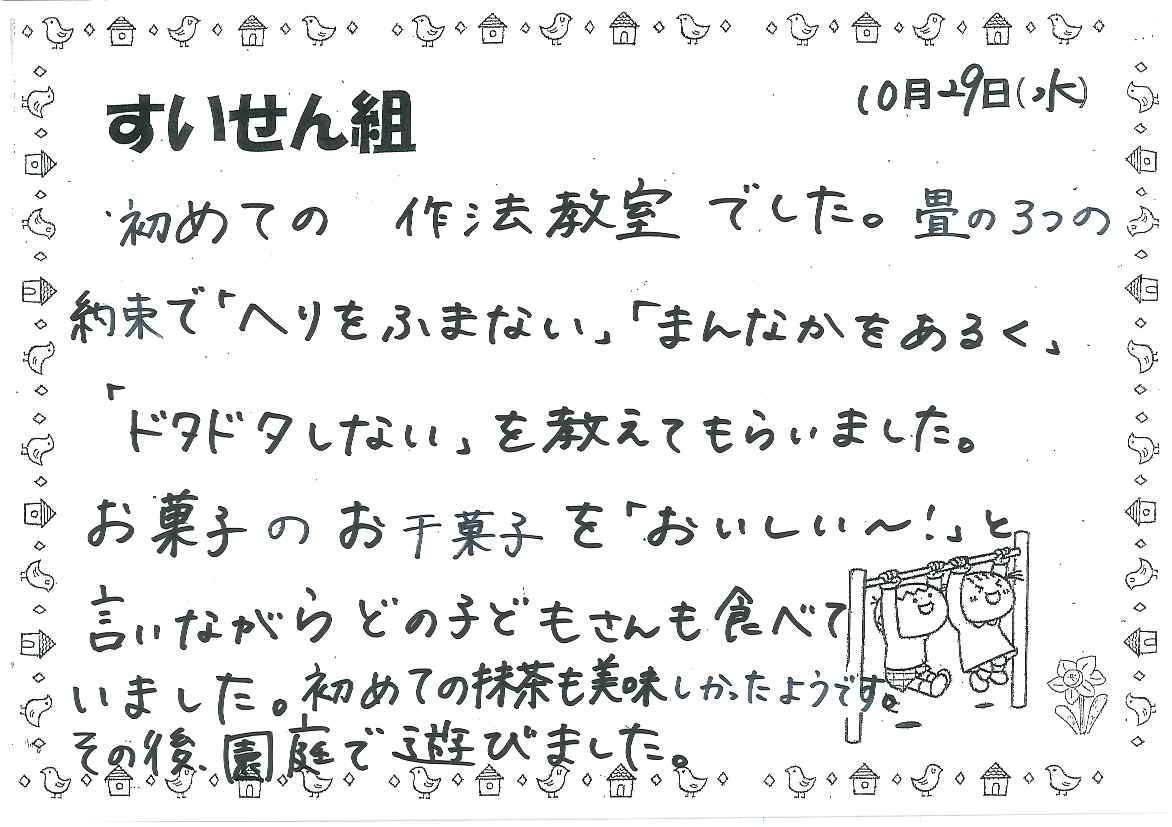 すいせん組
10月29日(水)
初めての 作法教室 でした。畳の3つの
約束で「へりをふまない」「まんなかをあるく」
「ドタドタしない」を教えてもらいました。
お菓子のお干菓子を「おいしい〜!」と
言いながらどの子どもさんも食べて
いました。初めての抹茶も美味しかったようです。
その後、園庭で遊びました。